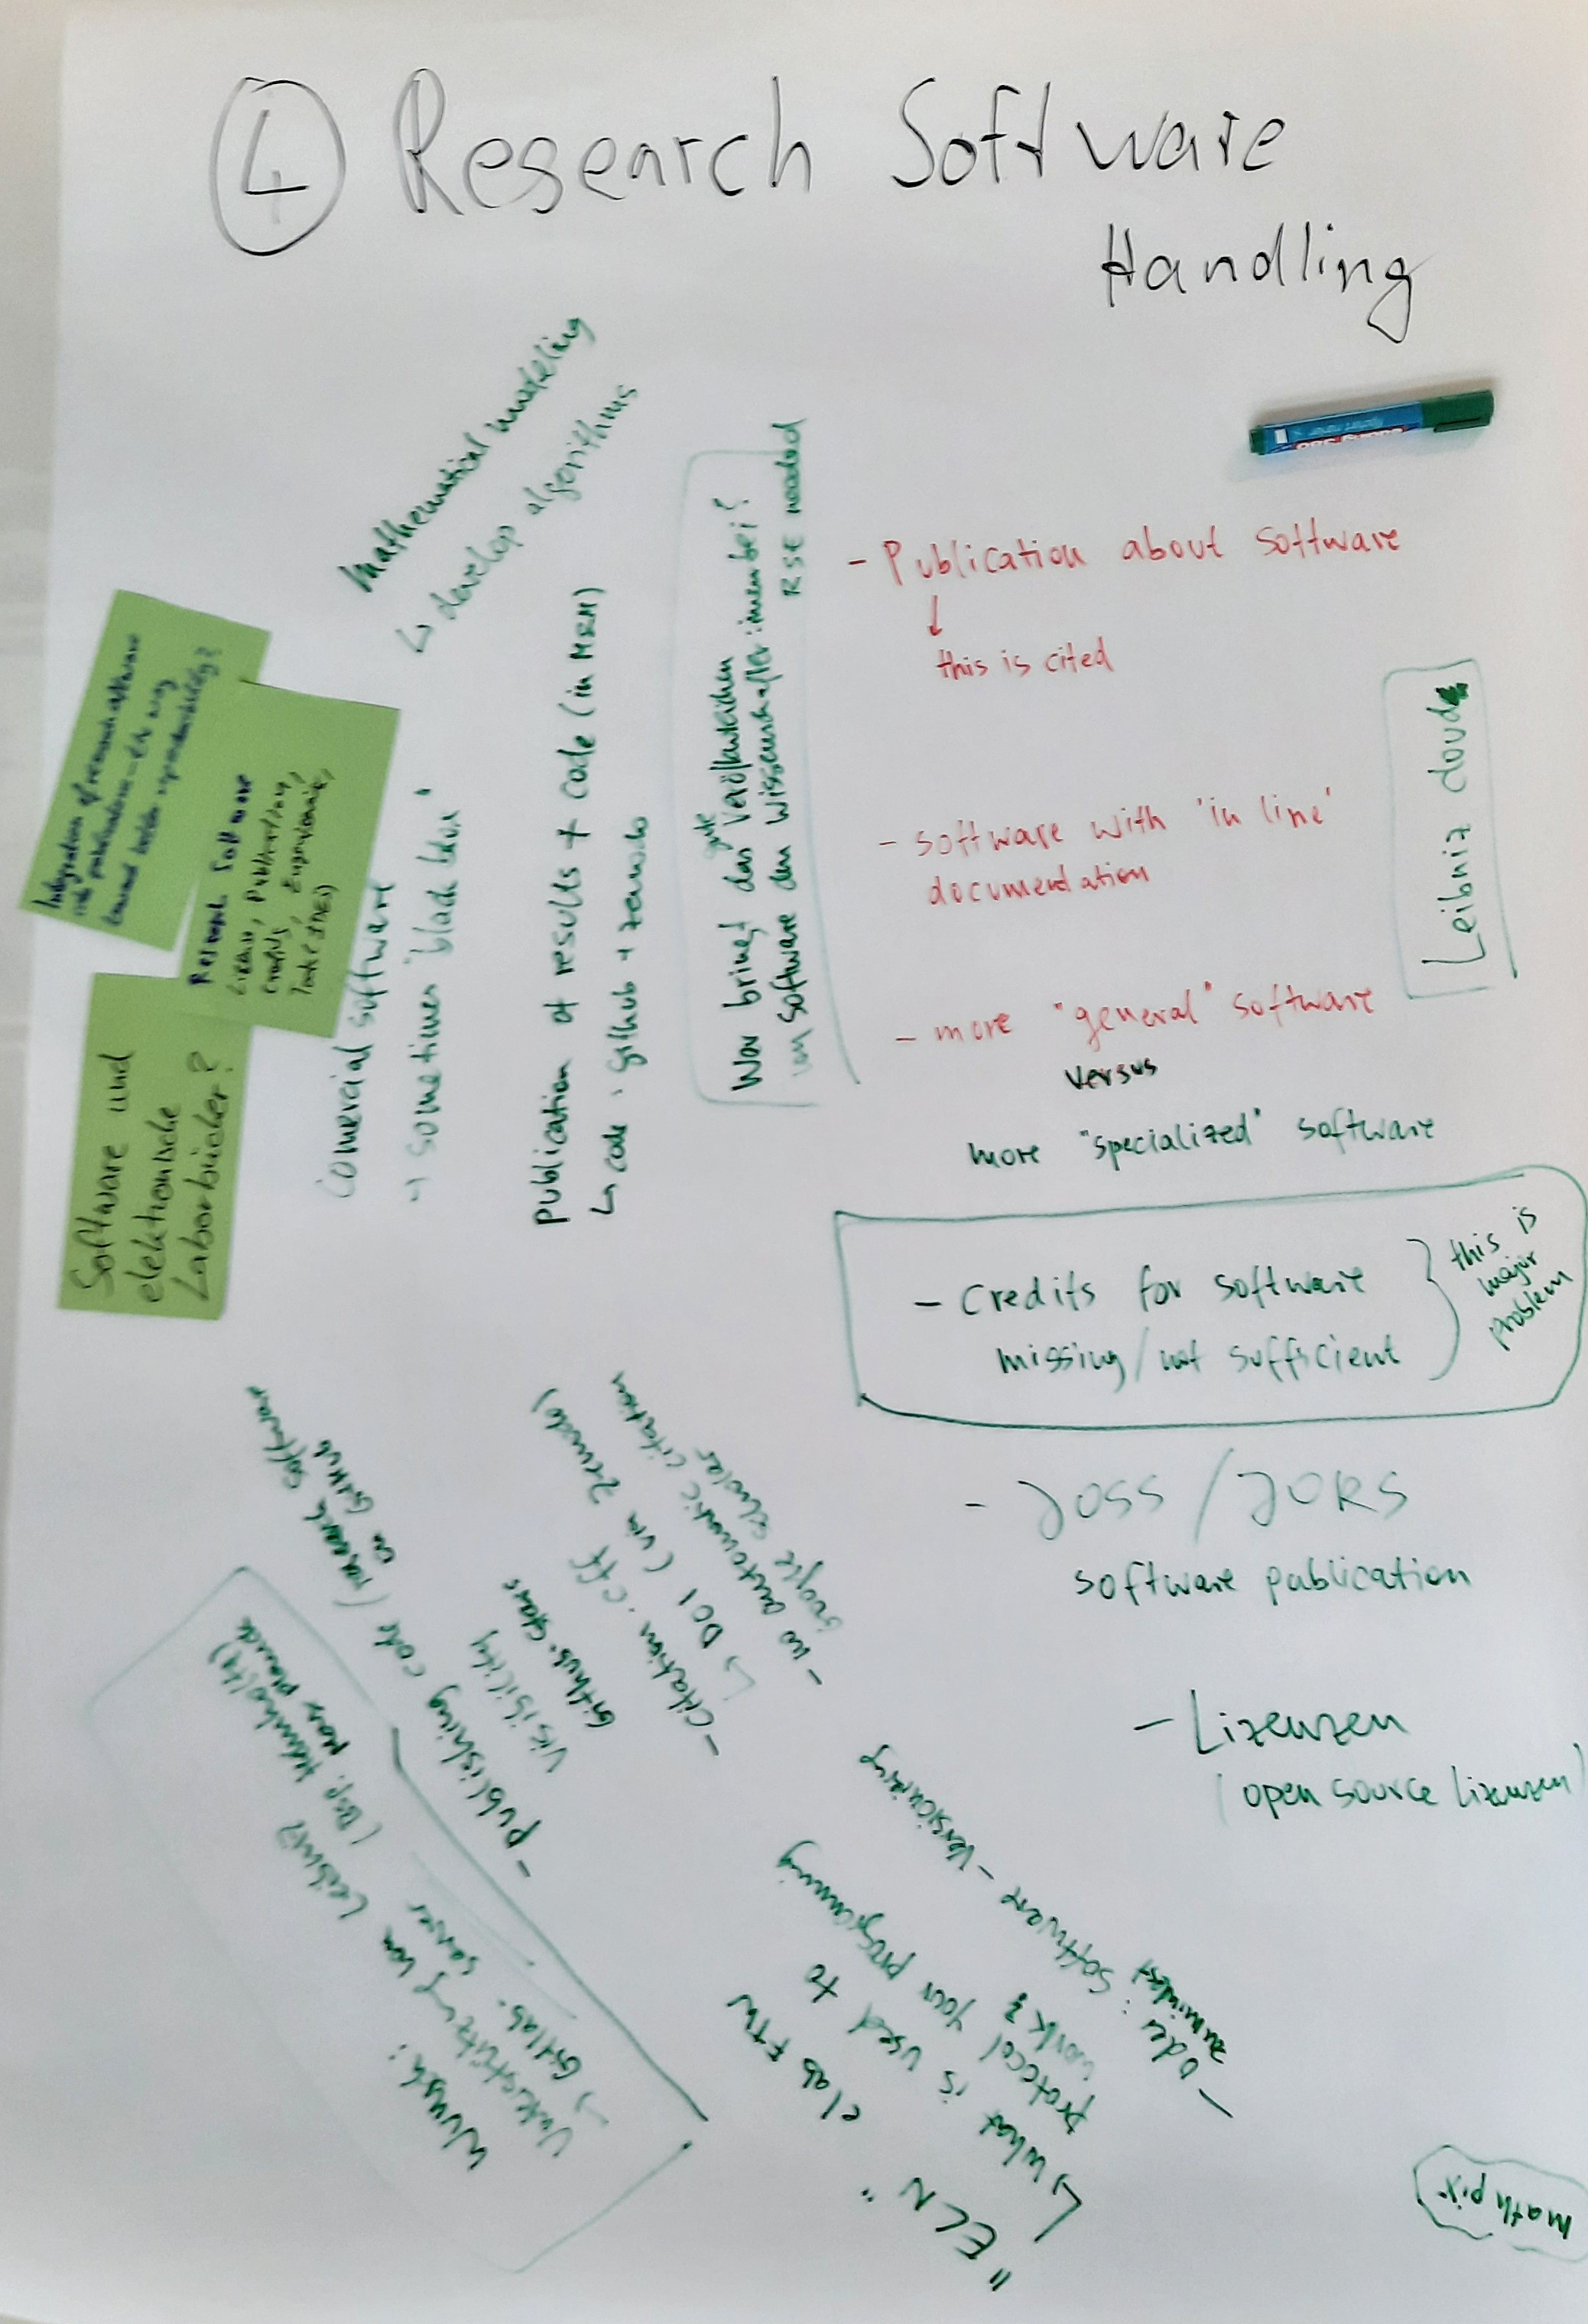 ④ Research Software
Handling
Mathematical modeling
↳ develop algorithms
Integration of research software
into publications
toward better reproducibility?
Research Software
License, Publication,
Credits, Ergonomie,
Software und
elektronische
Laborbücher?
Comercial software
→ sometimes 'black box'
Publication of results + code (in MRM)
↳ code: github + zenodo
Wer bringt das gute Veröffentlichen
von Software den Wissenschaftler:innen bei?
RSE needed
- Publication about software
↓
this is cited
- software with 'in line'
documentation
Leibniz cloud
- more "general" software
versus
more "specialized" software
- Credits for software
missing/not sufficient
this is
major
problem
- JOSS / JORS
software publication
- Lizenzen
(open source Lizenzen)
- publishing code (research software
on GitHub
visibility
Github: stars
- Citation.cff
↳ DOI (via Zenodo)
- no automatic citation
google scholar
Wunsch:
Unterstützung von Leibniz
(Bsp. Helmholtz)
→ Gitlab. server
"ELN"
elab FTW
↳ what is used to
protocol your programming
work?
- oder: software - versionierung
zumindest
mathpix